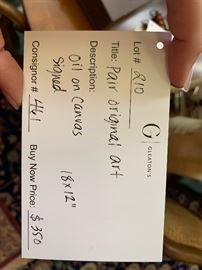 G
GLEATON'S
Lot # 210
Title: Pair original art
Description:
Oil on Canvas 18x12"
Signed
Consignor # 461 Buy Now Price: $350